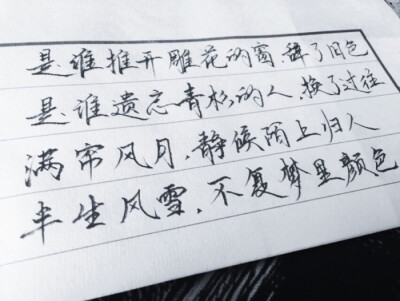 是谁推开雕花的窗,辞了旧色
是谁遗忘青衫的人,换了过往
满帘风月,静候陌上归人
半生风雪,不复梦里颜色